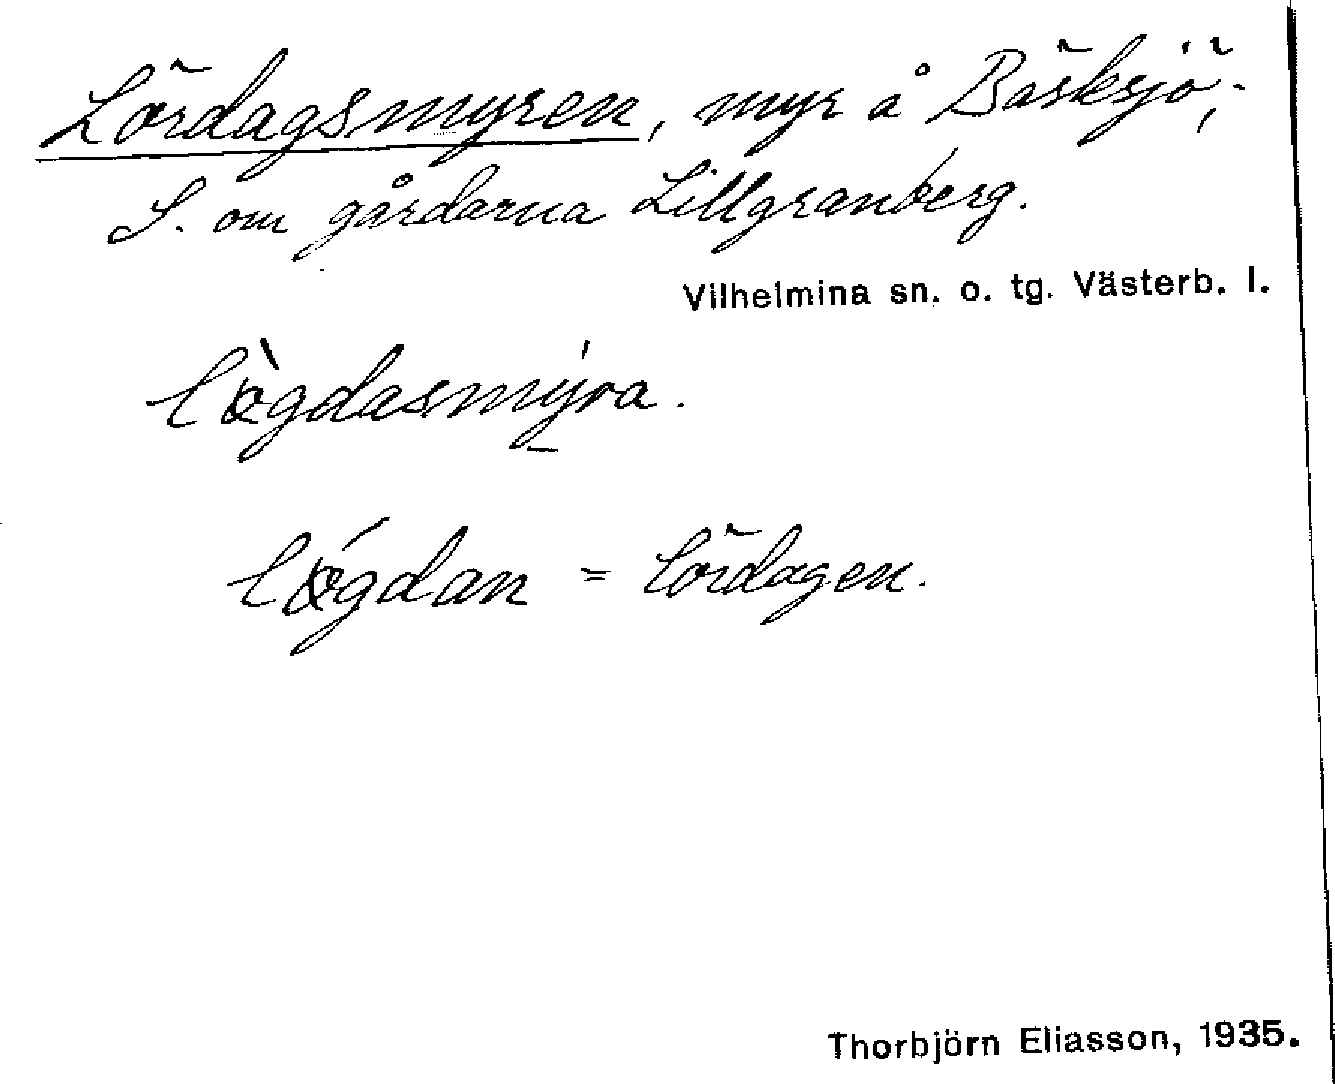 Lördagsmyren, myr å Bäsksjö;
S. om gårdarna Lillgranberg.
Vilhelmina sn. o. tg. Västerb. l.
lø̀gdasmýra.
lǿgdan = lördagen.
Thorbjörn Eliasson, 1935.